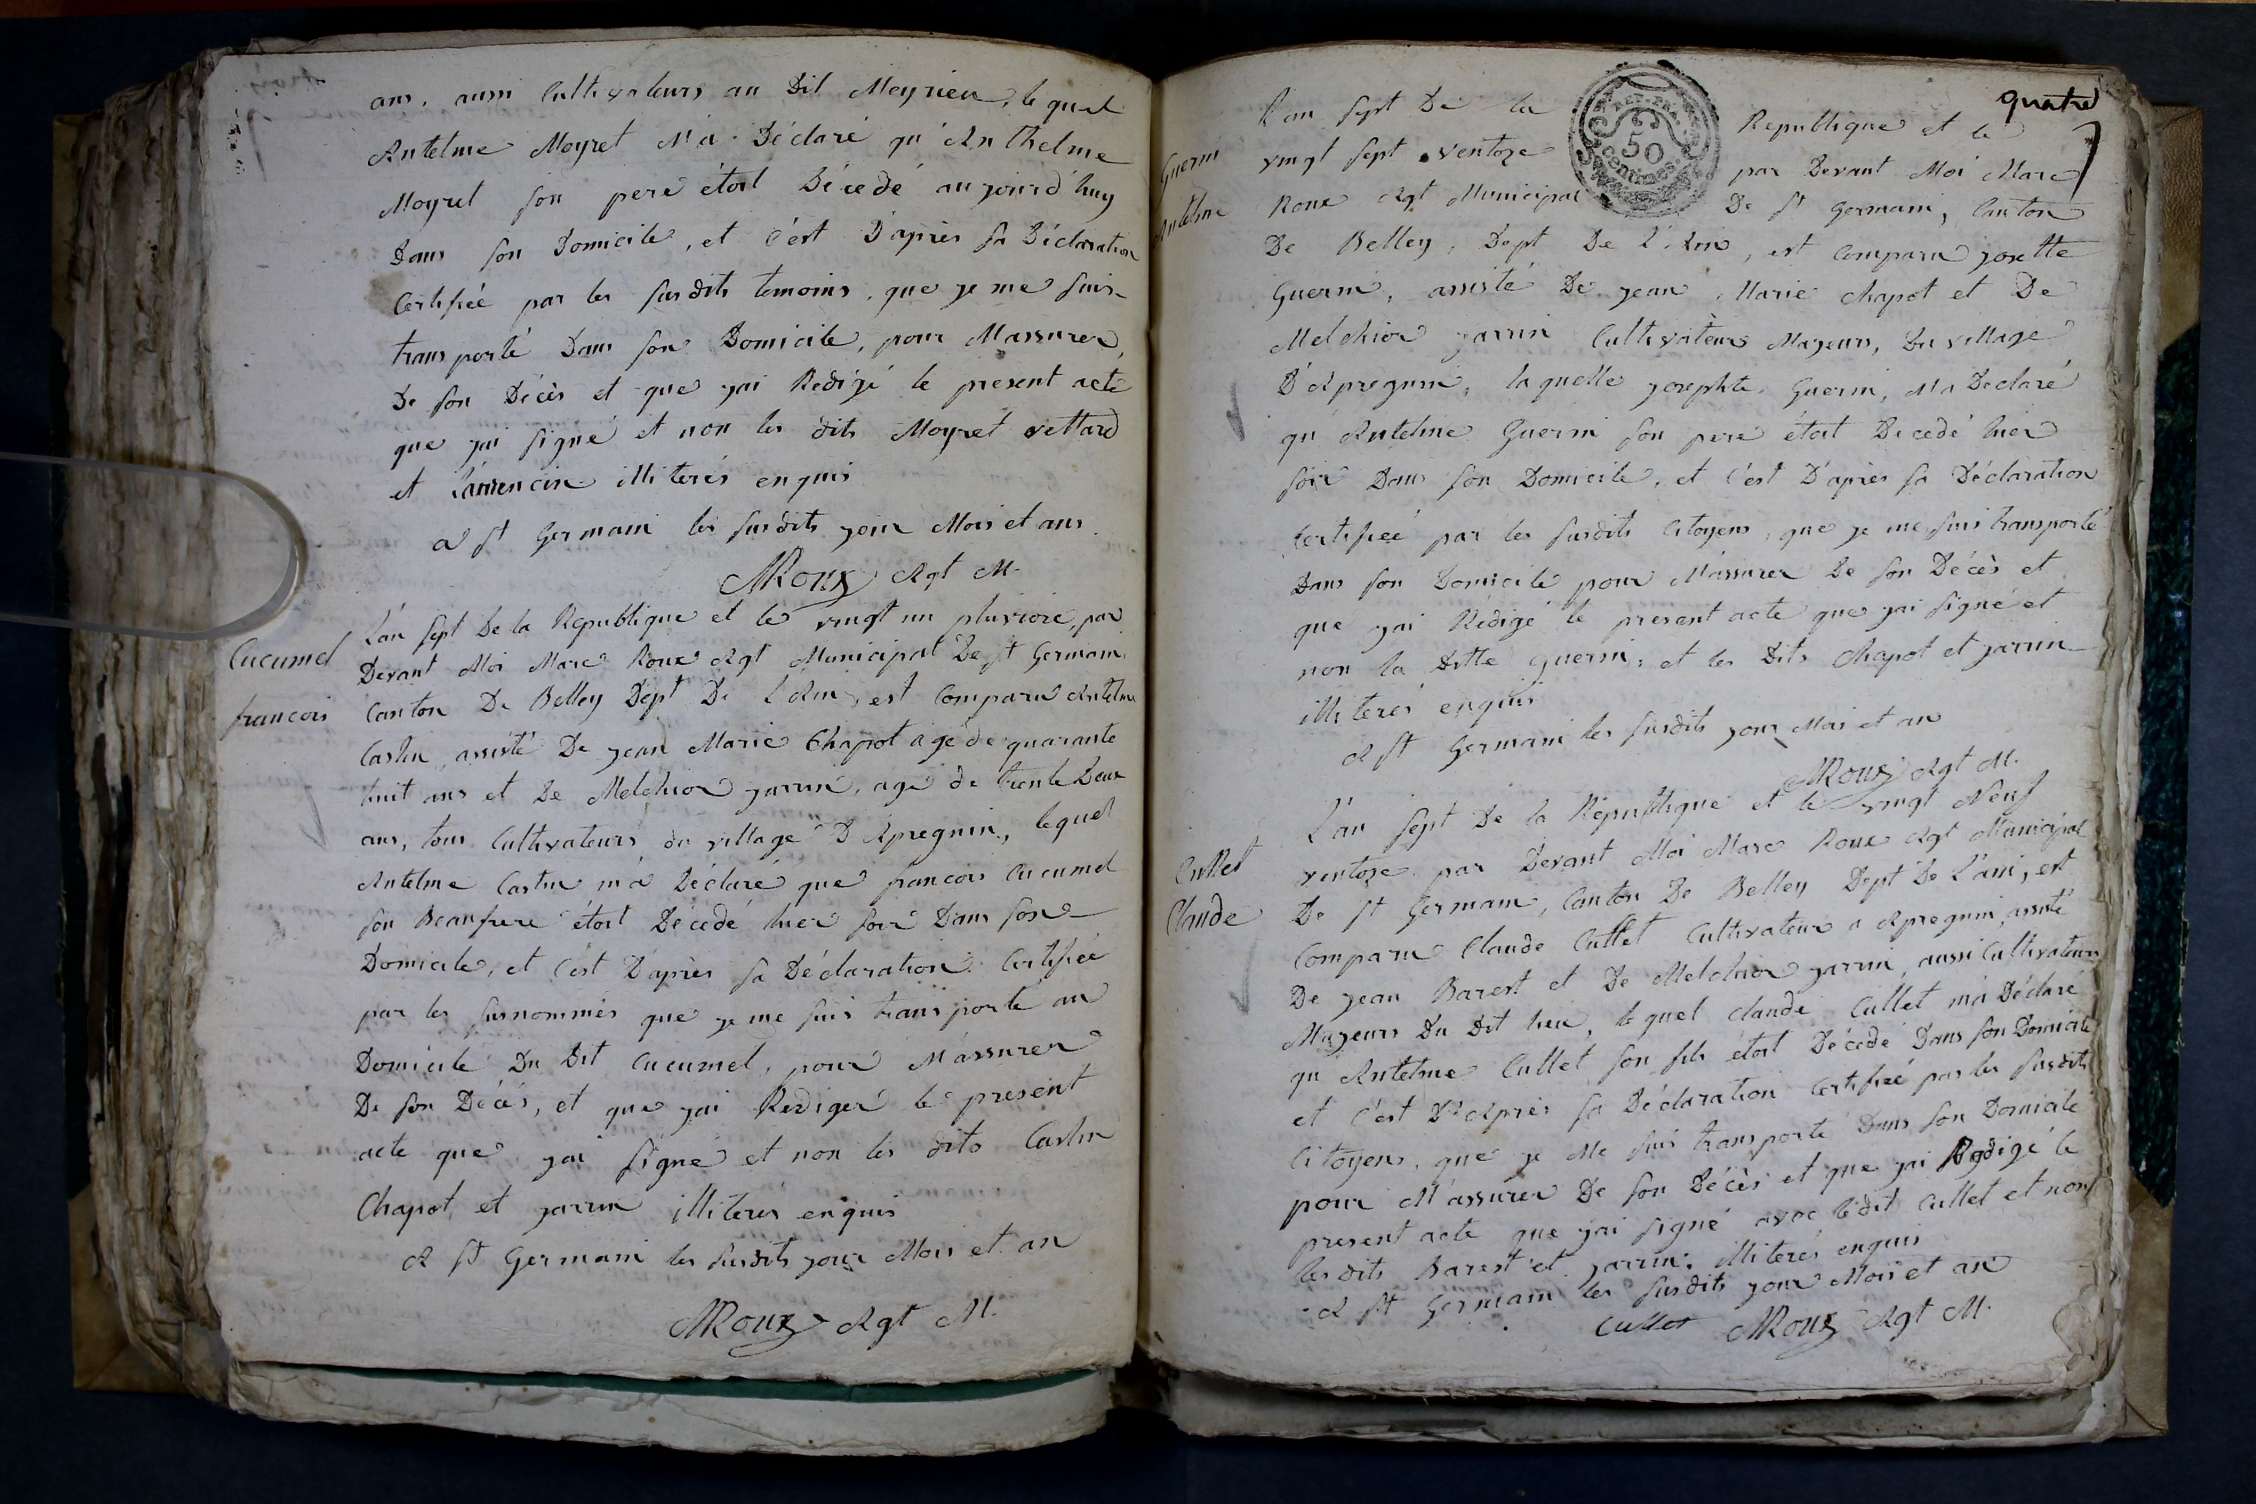 ans, aussi Cultivateurs au Dit Meyrieu, le quel
Antelme Moyret M'a Déclaré qu'Anthelme
Moyret son pere étoit Décedé aujourd'huy
Dans son Domicile, et C'est D'après sa Déclaration
Certifiée par les susdits temoins, que je me suis
transporté Dans son Domicile, pour M'assurer,
De son Décès et que jai Redigé le present acte
que jai signé et non les dits Moyret vettard
et illiterés enquis
a St Germain les susdits jour Mois et ans.
MRoux Agt M.
Cucumel
francois
L'an sept De la Republique et le vingt un pluviose, par
Devant Moi Marc Roux Agt Municipal De St Germain
Canton De Belley Dept De L'Ain, est Comparu Antelme
Castin, assisté De jean Marie Chapot agé de quarante
huit ans et De Melchior jarrin, agé de trente Deux
ans, tous Cultivateurs du village D'Apregnin, lequel
Antelme Castin m'a Déclaré que francois Cucumel
son Beaufrere étoit Décedé hier soir Dans son
Domicile, et C'est D'après sa Déclaration Certifiée
par les surnommés que je me suis transporté au
Domicile Du Dit Cucumel, pour M'assurer
De son Décès, et que jai Rediger le present
acte que jai signé et non les dits Castin
Chapot et jarrin illiterés enquis
A St Germain les susdits jour Mois et an
MRoux Agt M.
quatre
7
50
centimes
Guerin
Antelme
L'an sept De la Republique et le
vingt sept ventoze par Devant Moi Marc
Roux Agt Municipal De St Germain, Canton
De Belley, Dept De L'Ain, est Comparu josette
Guerin, assisté De jean Marie Chapot et De
Melchior jarrin Cultivateurs Majeurs, Du village
D'Apregnin, laquelle josephte Guerin, M'a Declaré
qu'Antelme Guerin son pere étoit Decedé hier
soir Dans son Domicile, et C'est D'après sa Déclaration
Certifiée par les susdits Citoyens, que je me suis transporté
Dans son Domicile pour M'assurer De son Décès et
que jai Rédigé le present acte que jai signé et
non la Ditte Guerin, et les Dits Chapot et jarrin
illiterés enquis
A St Germain les susdits jour Mois et an
MRoux Agt M.
Cullet
Claude
L'an sept De la République et le vingt Neuf
ventoze par Devant Moi Marc Roux Agt Municipal
De St Germain, Canton De Belley Dept De L'ain, est
Comparu Claude Cullet Cultivateur a Apregnin, assisté
De jean Barest et De Melchior jarrin, aussi Cultivateurs
Majeurs Du Dit lieu, le quel Claude Cullet m'a Déclaré
qu'Antelme Cullet son fils étoit Décedé Dans son Domicile
et C'est D'Après sa Déclaration Certifiée par les susdits
Citoyens, que je Me suis transporté Dans son Domicile
pour M'assurer De son Décès et que jai Redigé le
present acte que jai signé avec ledit Cullet et non
les dits Barest et jarrin, illiterés enquis
A St Germain les susdits jour Mois et an
Cullet MRoux Agt M.